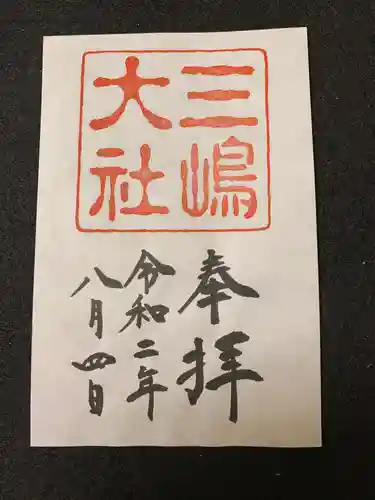 三嶋
大社
奉拝
令和二年
八月四日